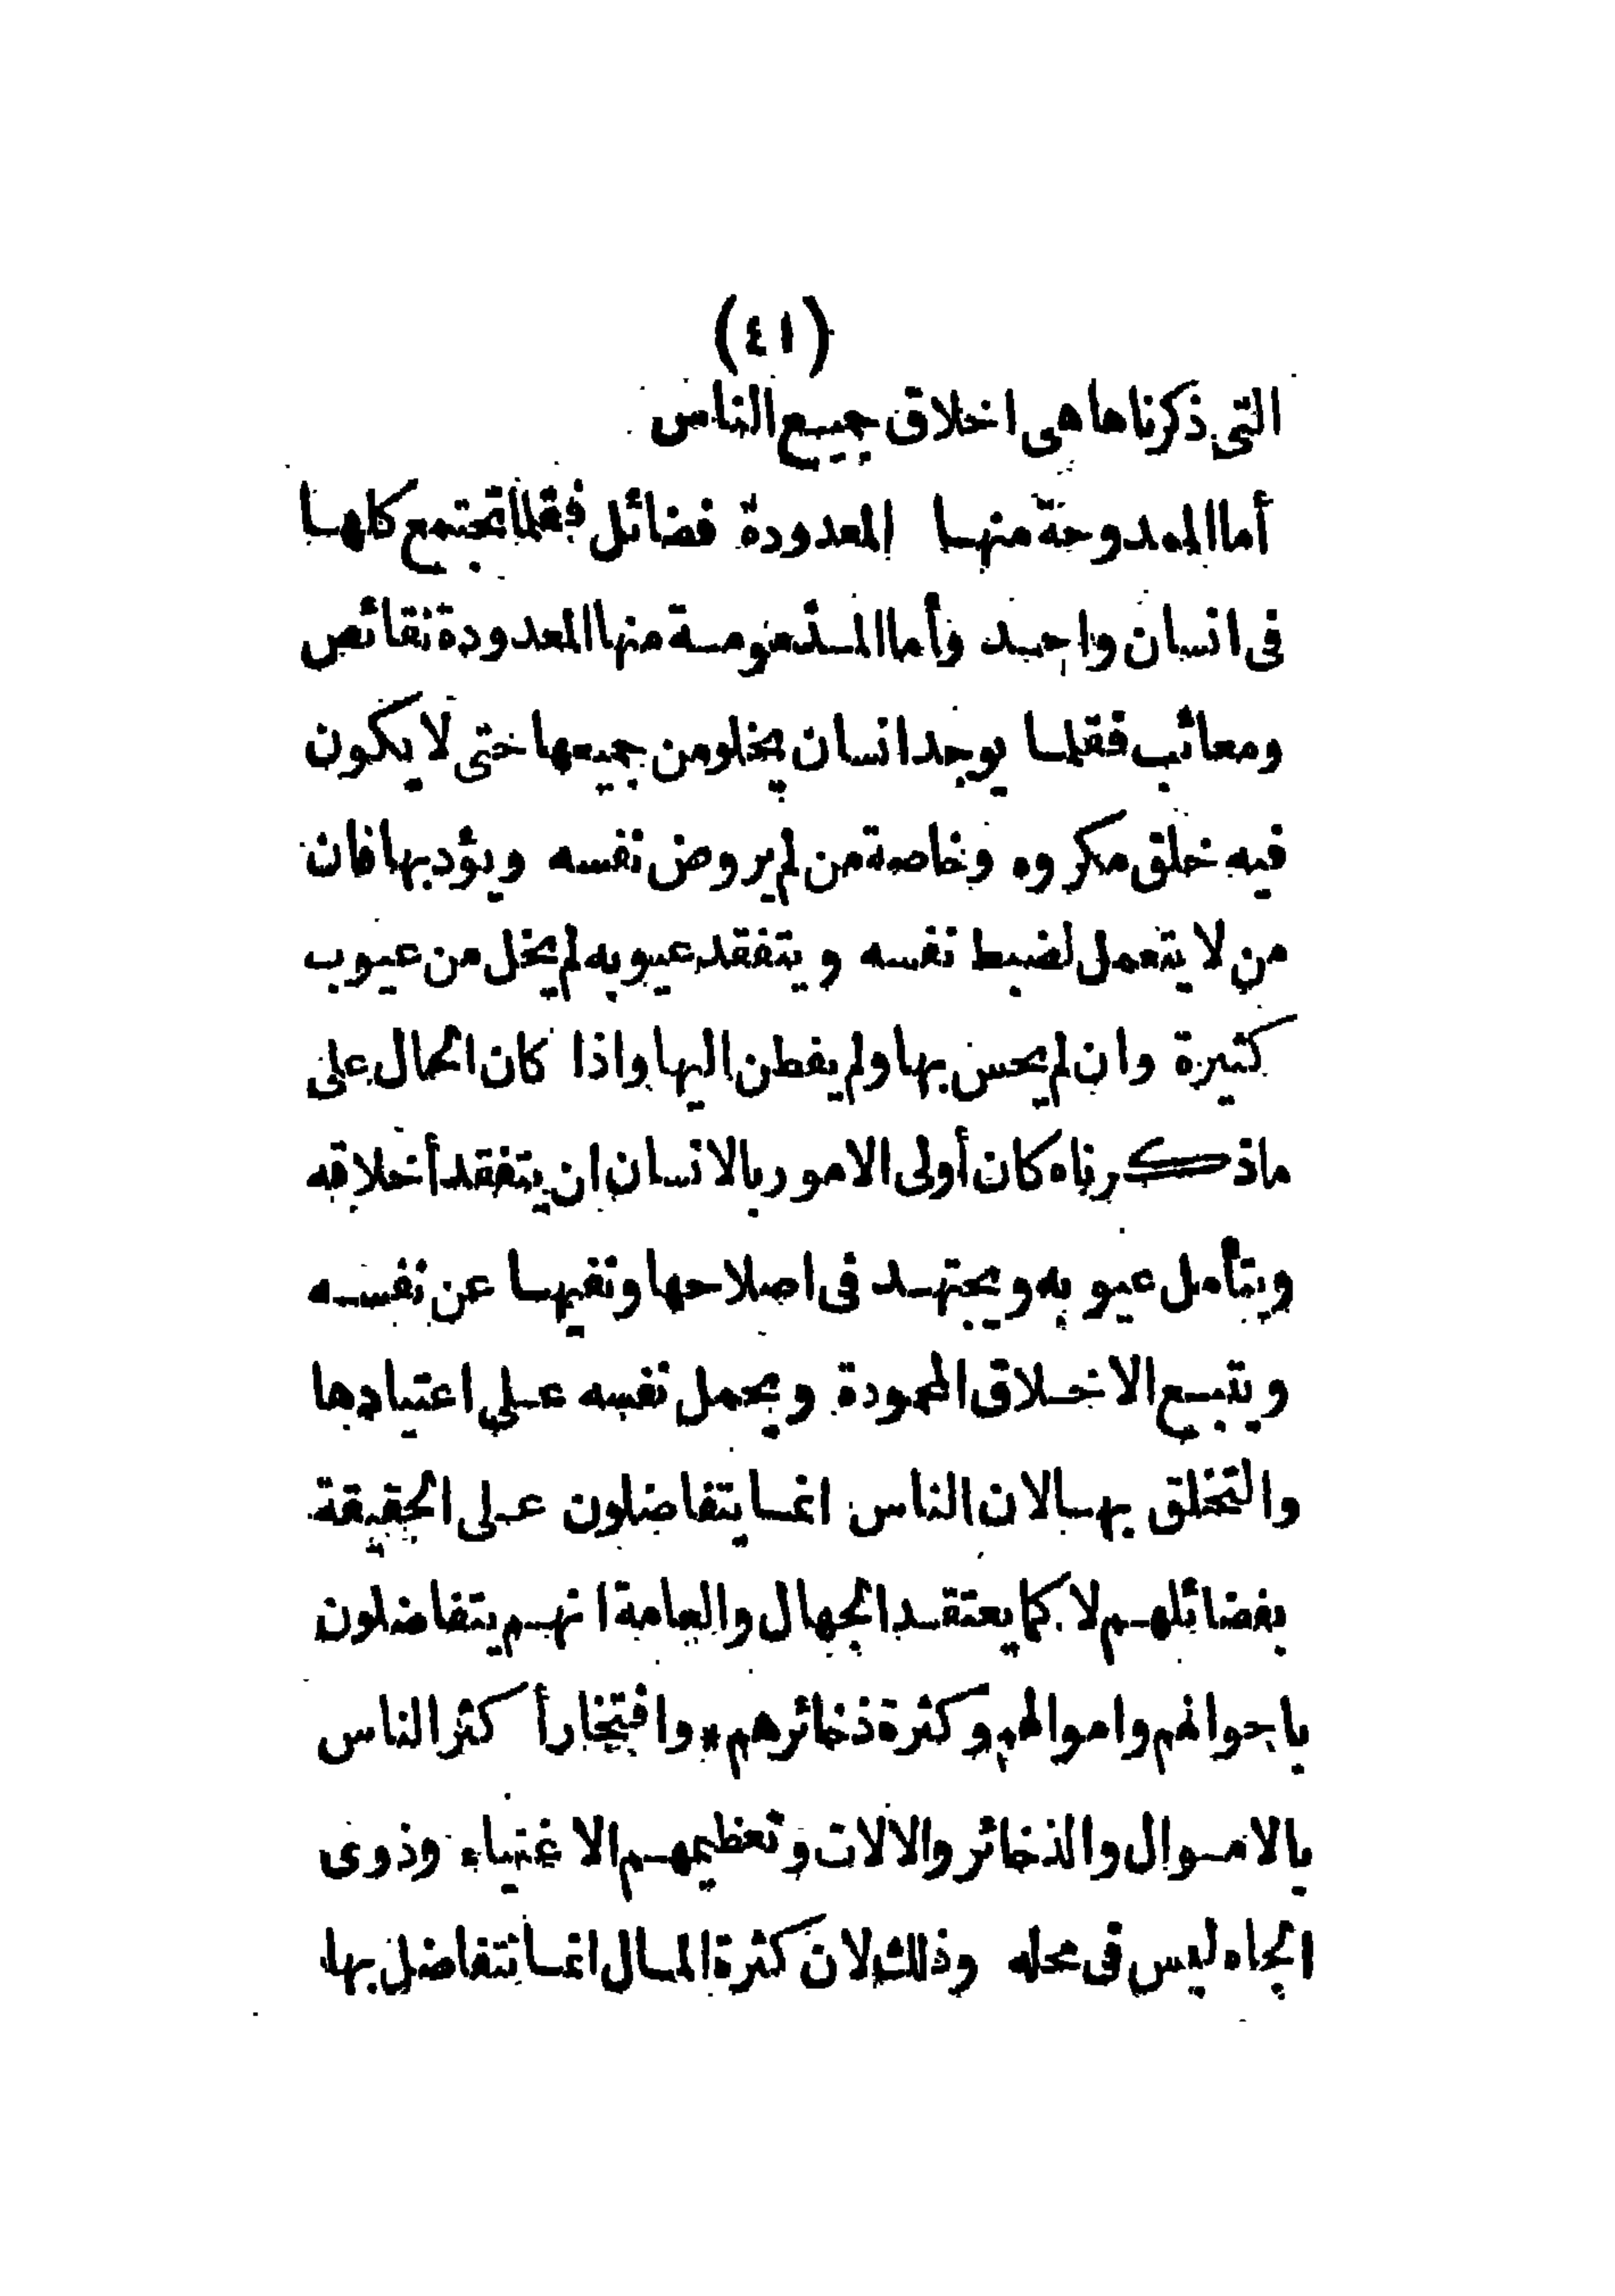 (٤١)
التى ذكرناها هى اخلاق جميع الناس
أما الممدوحة منها المعدودة فضائل فقلما تجتمع كلها
فى انسان واحد وأما المذمومة منها المعدودة نقائص
ومعائب فقلما يوجد انسان يخلو من جميعها حتى لا يكون
فيه خلق مكروه وخاصة من لم يروض نفسه ويؤدبها فان
من لا يتعمل لضبط نفسه ويتفقد عيوبه لم يخل من عيوب
كثيرة وان لم يحس بها ولم يفطن اليها واذا كان الحال على
ماذكرناه كان أولى الامور بالانسان ان يتفقد أخلاقه
ويتأمل عيوبه ويجتهد فى اصلاحها ونفيها عن نفسه
ويتبع الاخلاق المحمودة ويحمل نفسه على اعتيادها
والتخلق بها لان الناس انما يتفاضلون على الحقيقة
بفضائلهم لا كما يعتقد الجهال والعامة انهم يتفاضلون
باحوالهم واموالهم وكثرة ذخائرهم * وافتخار أكثر الناس
بالاموال والذخائر والالات وتعظيمهم الاغنياء وذوى
الجاه ليس فى محله وذلك لان كثرة المال انما نتفاضل بها